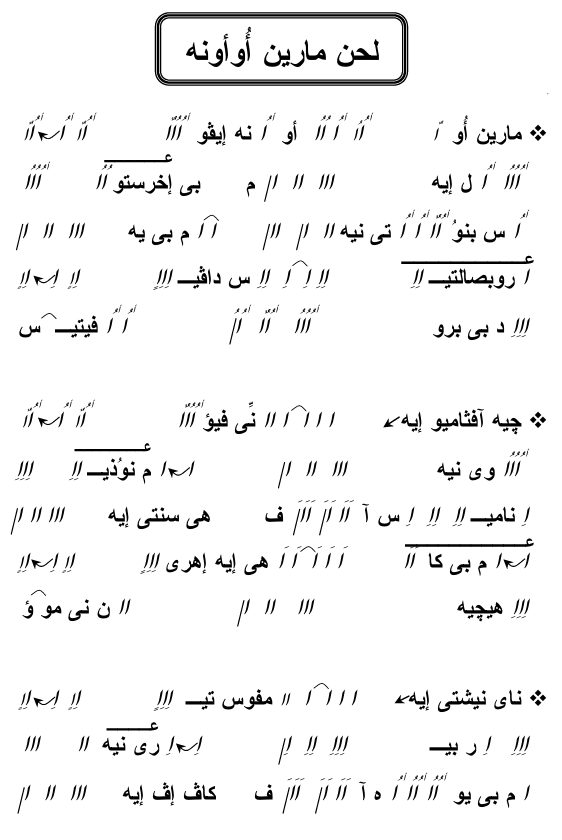 لحن مارين أُوأونه
❖ مارين أُو أو نه إيڤو
ل إيه م بى إخرستو
س بنوُ تى نيه م بى يه
روبصالتيـ س داڤيـ
د بى برو فيتيـ س
❖ چيه آفثاميو إيه نِّى فيؤ
وى نيه م نوُذيـ
ناميـ س آ ف هى سنتى إيه
م بى كا هى إيه إهرى
هيچيه ن نى مو ؤ
❖ ناى نيشتى إيه مفوس تيـ
ر بيـ رى نيه
م بى يو ه آ ف كاڤ إڤ إيه